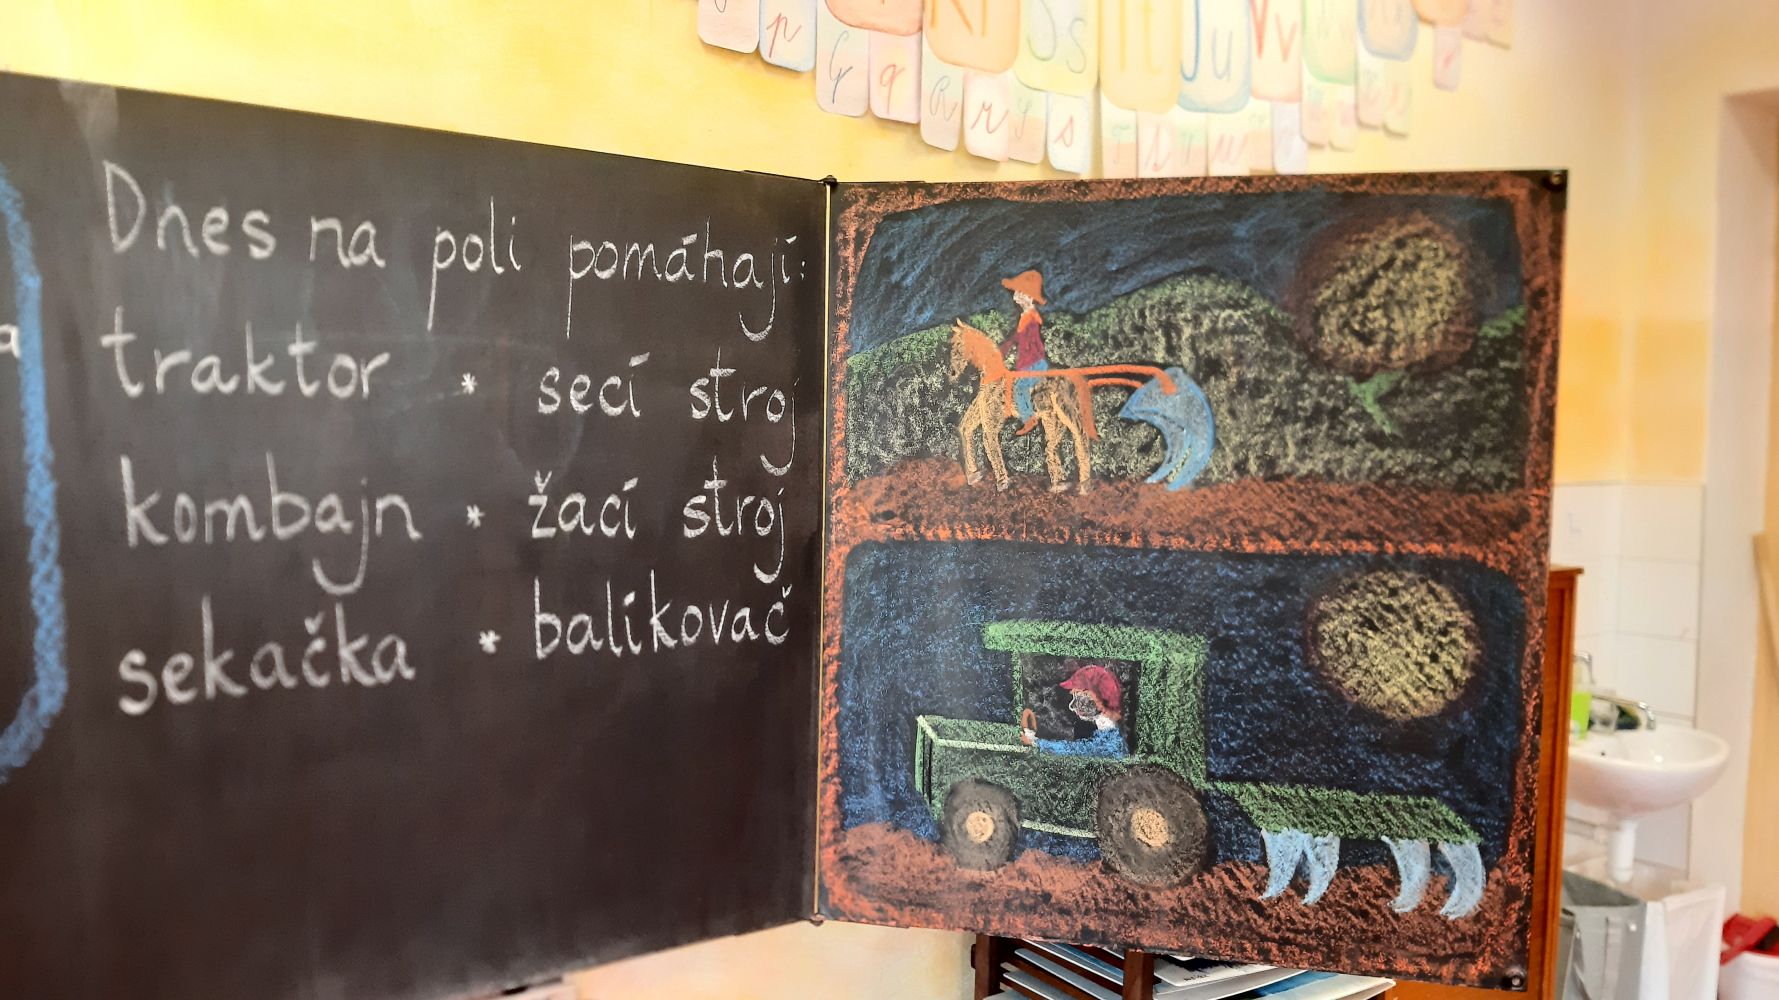 p
G q
R r
S s
Ss
Ju
Vv
a
Dnes na poli pomáhají:
traktor * secí stroj
kombajn * žací stroj
sekačka * balíkovač